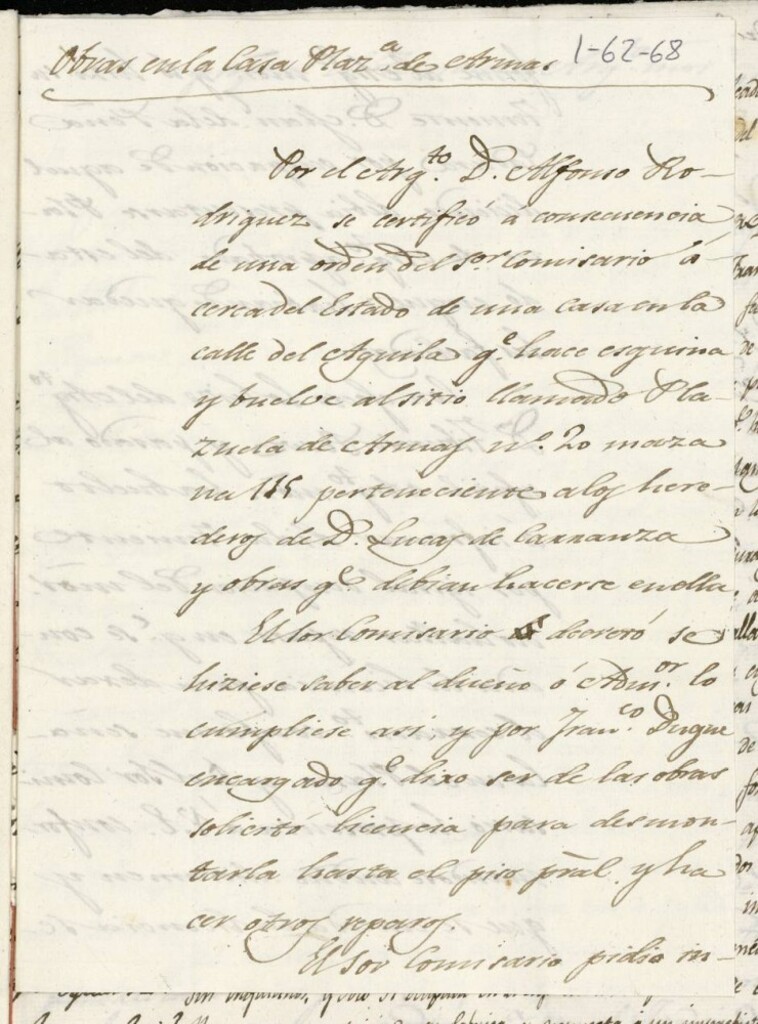 Obras en la Casa Plaz.ª de Armas 1-62-68
Por el Arq.to D. Alfonso Ro-
driguez se certificó a consecuencia
de una orden del Sor. Comisario á-
cerca del Estado de una casa en la
calle del Aguila q.e hace esquina
y buelve al sitio llamado Pla-
zuela de Armas n.º 20 manza
na 115 perteneciente a los here-
deros de D. Lucas de Carranza
y obras q.e debian hacerse en ella
El Sor Comisario decretó se
hiziese saber al dueño ó Adm.or lo
cumpliese asi, y por Fran.co Duque
encargado q.e dixo ser de las obras
solicitó licencia para desmon-
tarla hasta el piso pral. y ha
cer otros reparos.
El Sor Comisario pidio in-